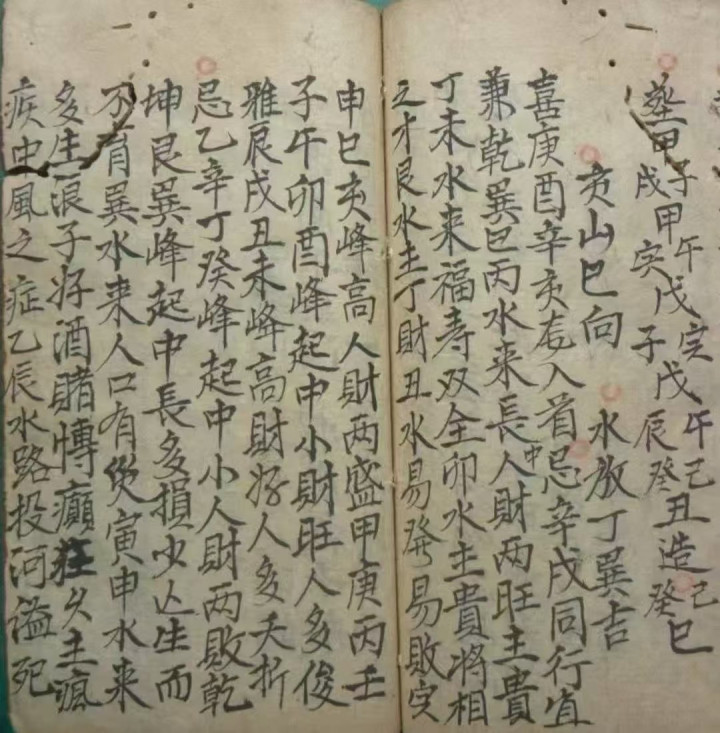 塟甲子戌甲午寅戊寅子戊午辰己癸丑造己癸巳
亥山巳向 水放丁巽吉
喜庚酉辛亥龙入首忌辛戌同行宜
兼乾巽巳丙水来長中人財两旺主貴
丁未水来福寿双全卯水主貴将相
之才艮水主丁財丑水易發易敗寅
申巳亥峰高人財两盛甲庚丙壬
子午卯酉峰起中小財旺人多俊
雅辰戌丑未峰高財好人多夭折
忌乙辛丁癸峰起中小人財两敗乾
坤艮巽峰起中長多損少亡生而
不育巽水来人口有災寅申水来
多生浪子好酒賭慱癲狂久主瘋
疾中風之症乙辰水路投河溢死